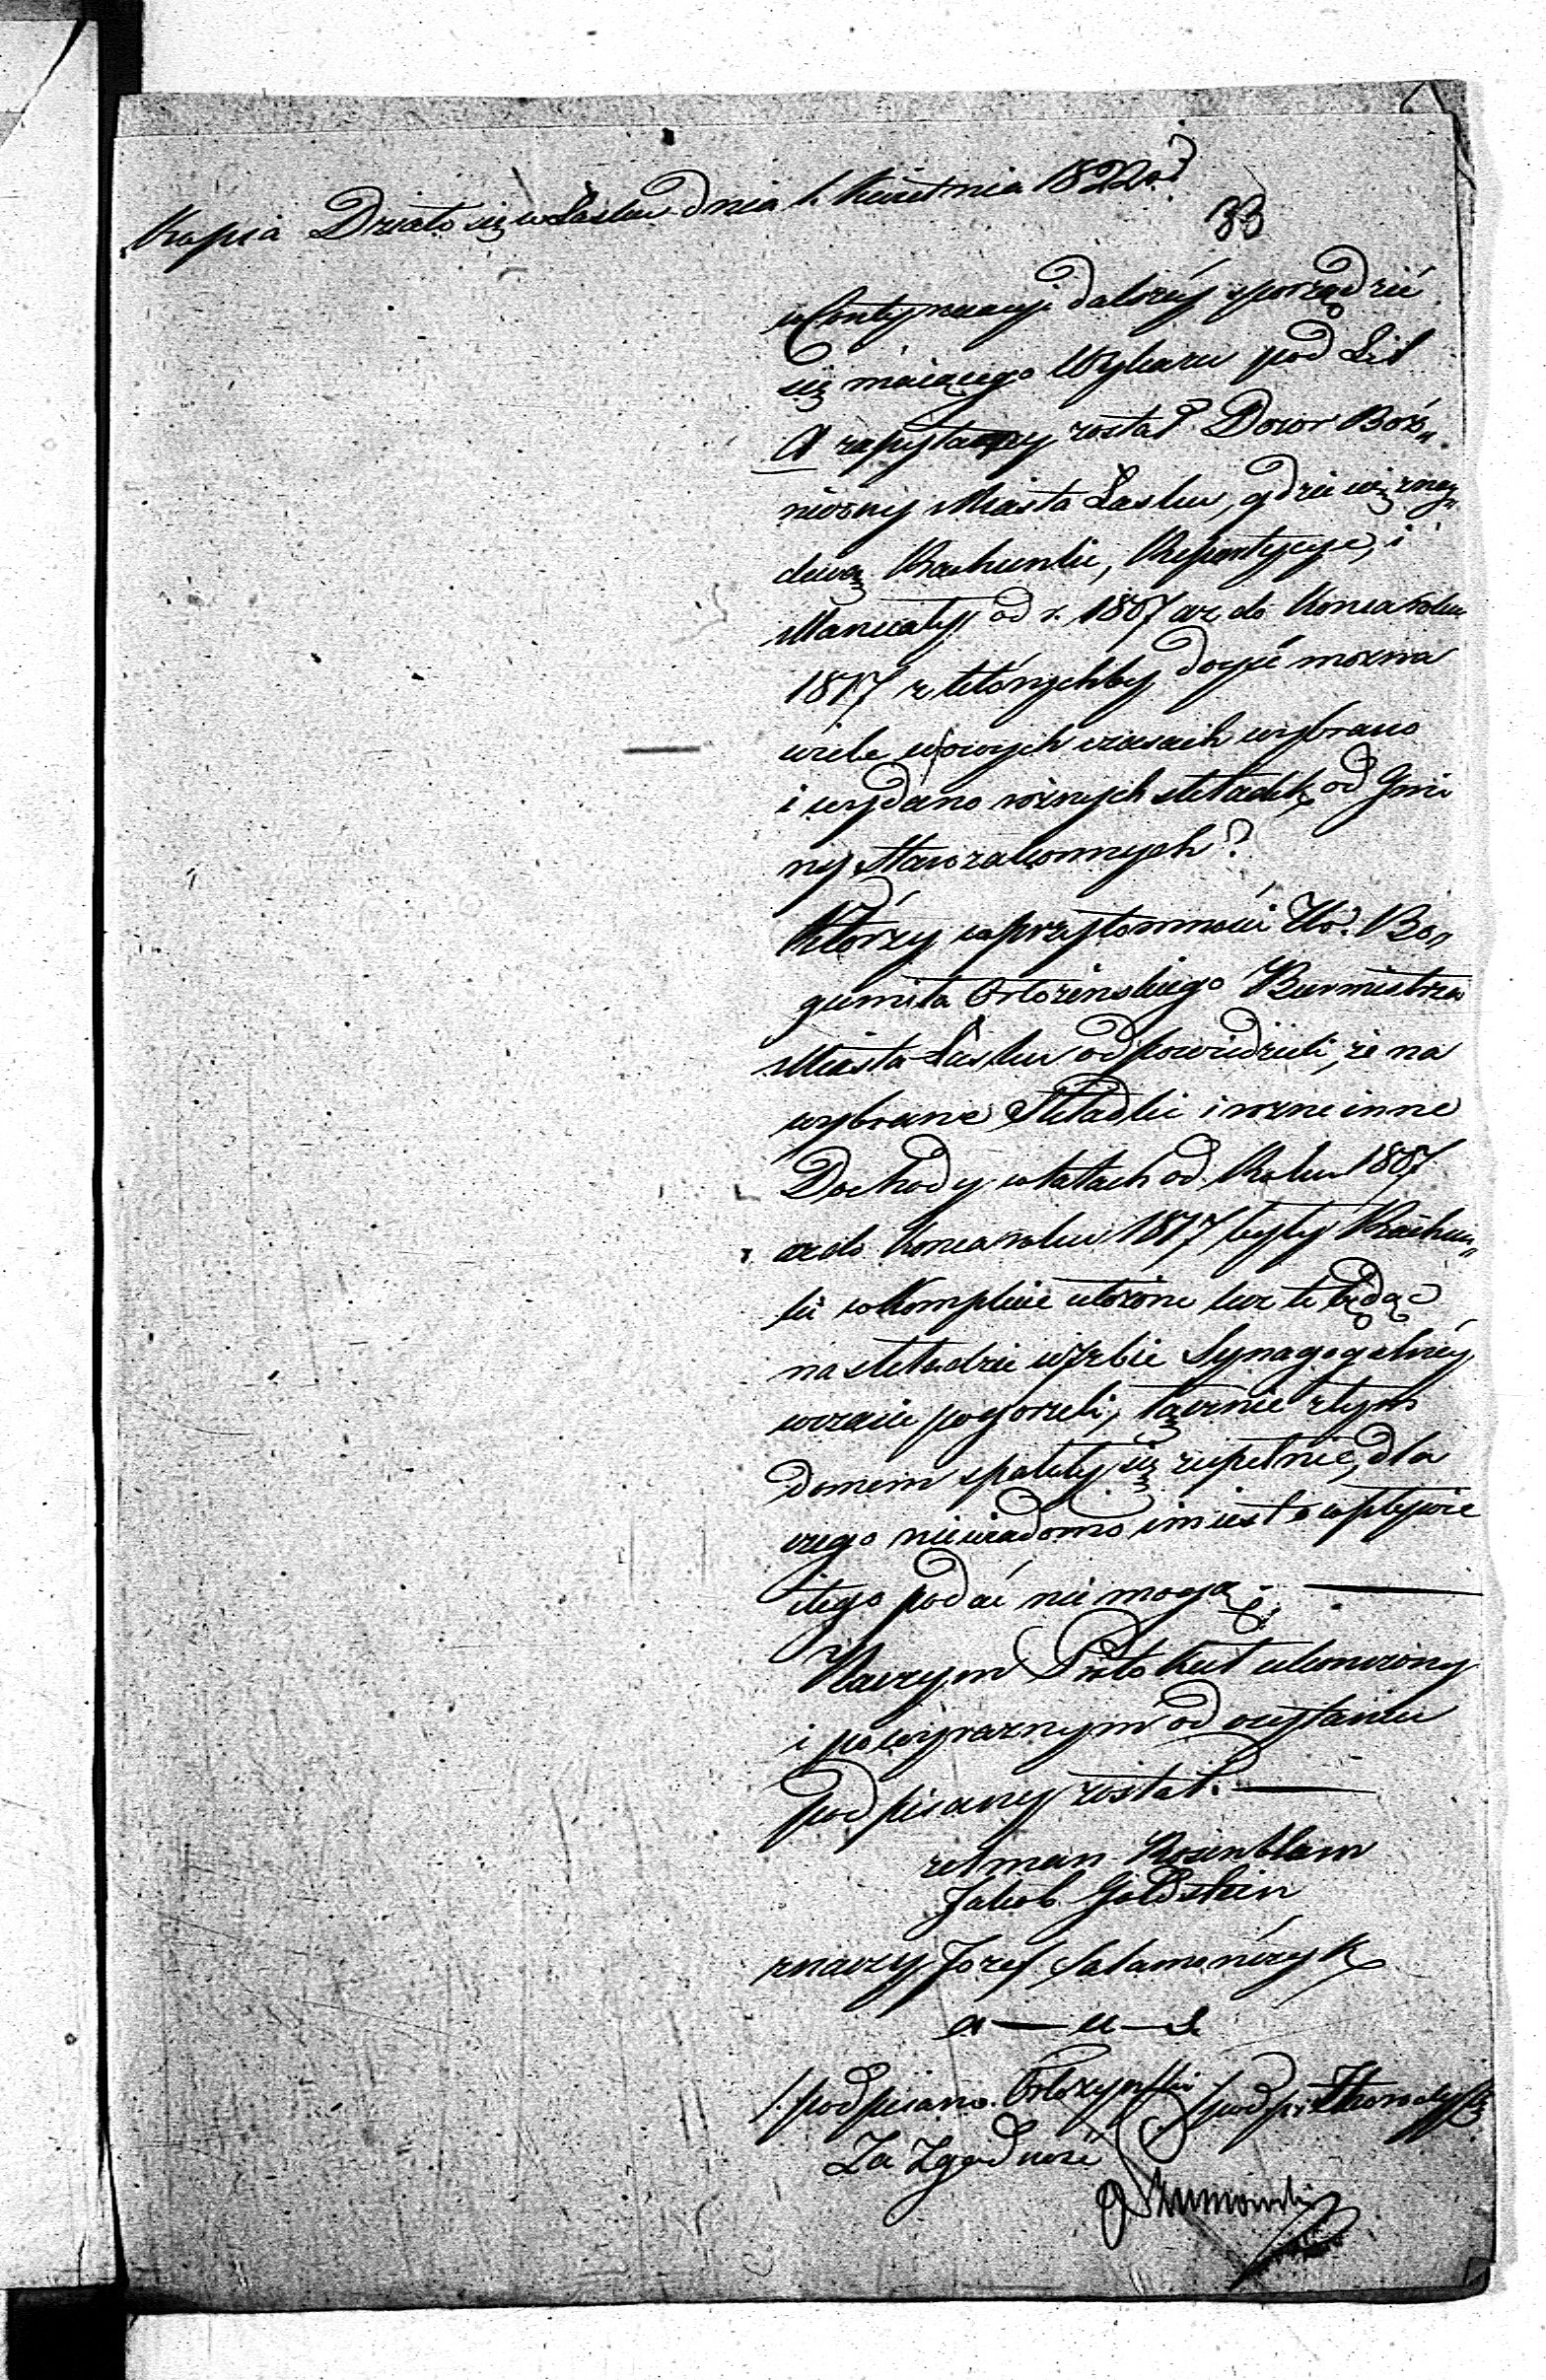 Kopia Działo się w Łasku dnia 1 Kwietnia 1822 r.
33
w Contynuacyi dalszéy sporządzić
się máiącego Wykazu pod Lit
A zapytany został Dozor Boż„
niczny Miasta Łasku, gdzie się znay„
duią Rachunki, Repartycye, i
Manuały od r. 1807 aż do Konca roku
1817 z których by doyść można
wiele w owych czasach wybrano
i wydano różnych składek od Gmi
ny Starozakonnych?
Którzy w przytomności Ur. Bo„
gumiła Orłozinskiego Burmistrza
Miasta Łasku odpowiedzieli, że na
wybrane Składki i rozne inne
Dochody w latach od Roku 1807
aż do Konca roku 1817 były Rachun„
ki w Komplecie ułożone lecz te będąc
na składzie w Izbie Synagogalnéy
w czasie pogorzeli, łącznie z tym
domem spaliły się zupełnie, dla
czego niewiadomo im iest o wpływie
i tego podać nie mogą. —
Na czym Protokuł ukonczony
i po wyraznym odczytaniu
podpisany został. —
zelman Rosenblum
Jakob Goldstein
znaczy Jozef Salamonczyk
a — u — s
/. podpisano. Orłozynski /podp:
Za Zgodnosć